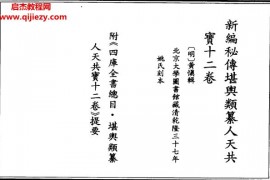 启杰教程网
新編秘傳堪輿類纂人天共
寶十二卷
〔明〕黃慎輯
北京大學圖書館藏清乾隆三十七年
姚氏刻本
附《四庫全書總目·堪輿類纂
人天共寶十二卷》提要